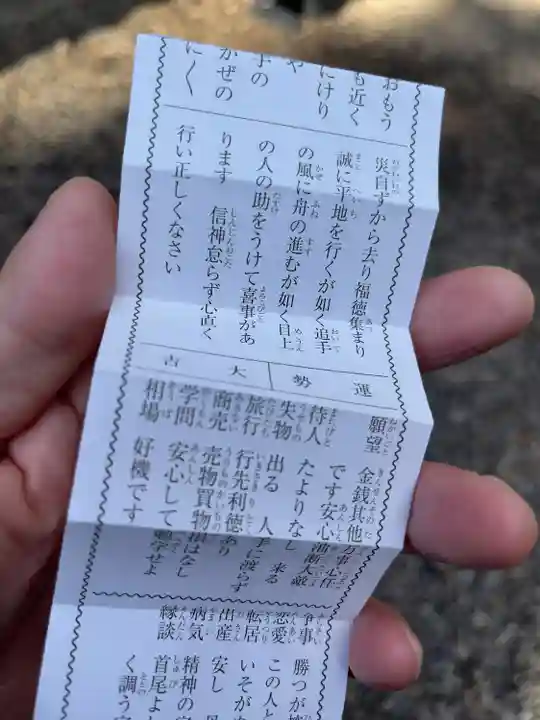 おもう
も近く
にけり
や
手の
かぜの
にく
災自ずから去り福徳集まり
誠に平地を行くが如く追手
の風に舟の進むが如く目上
の人の助をうけて喜事があ
ります 信神怠らず心直く
行い正しくなさい
運勢 大吉
願望 金銭其他万事心任
です安心油断大敵
待人 たよりなし 来る
失物 出る 人手に渡らず
旅行 行先利徳あり
商売 売物買物損はなし
学問 安心して勉学せよ
相場 好機です
争事 勝つが
恋愛 この人と
転居 いそがず
出産 安し
病気 精神の
縁談 首尾よ
く調う